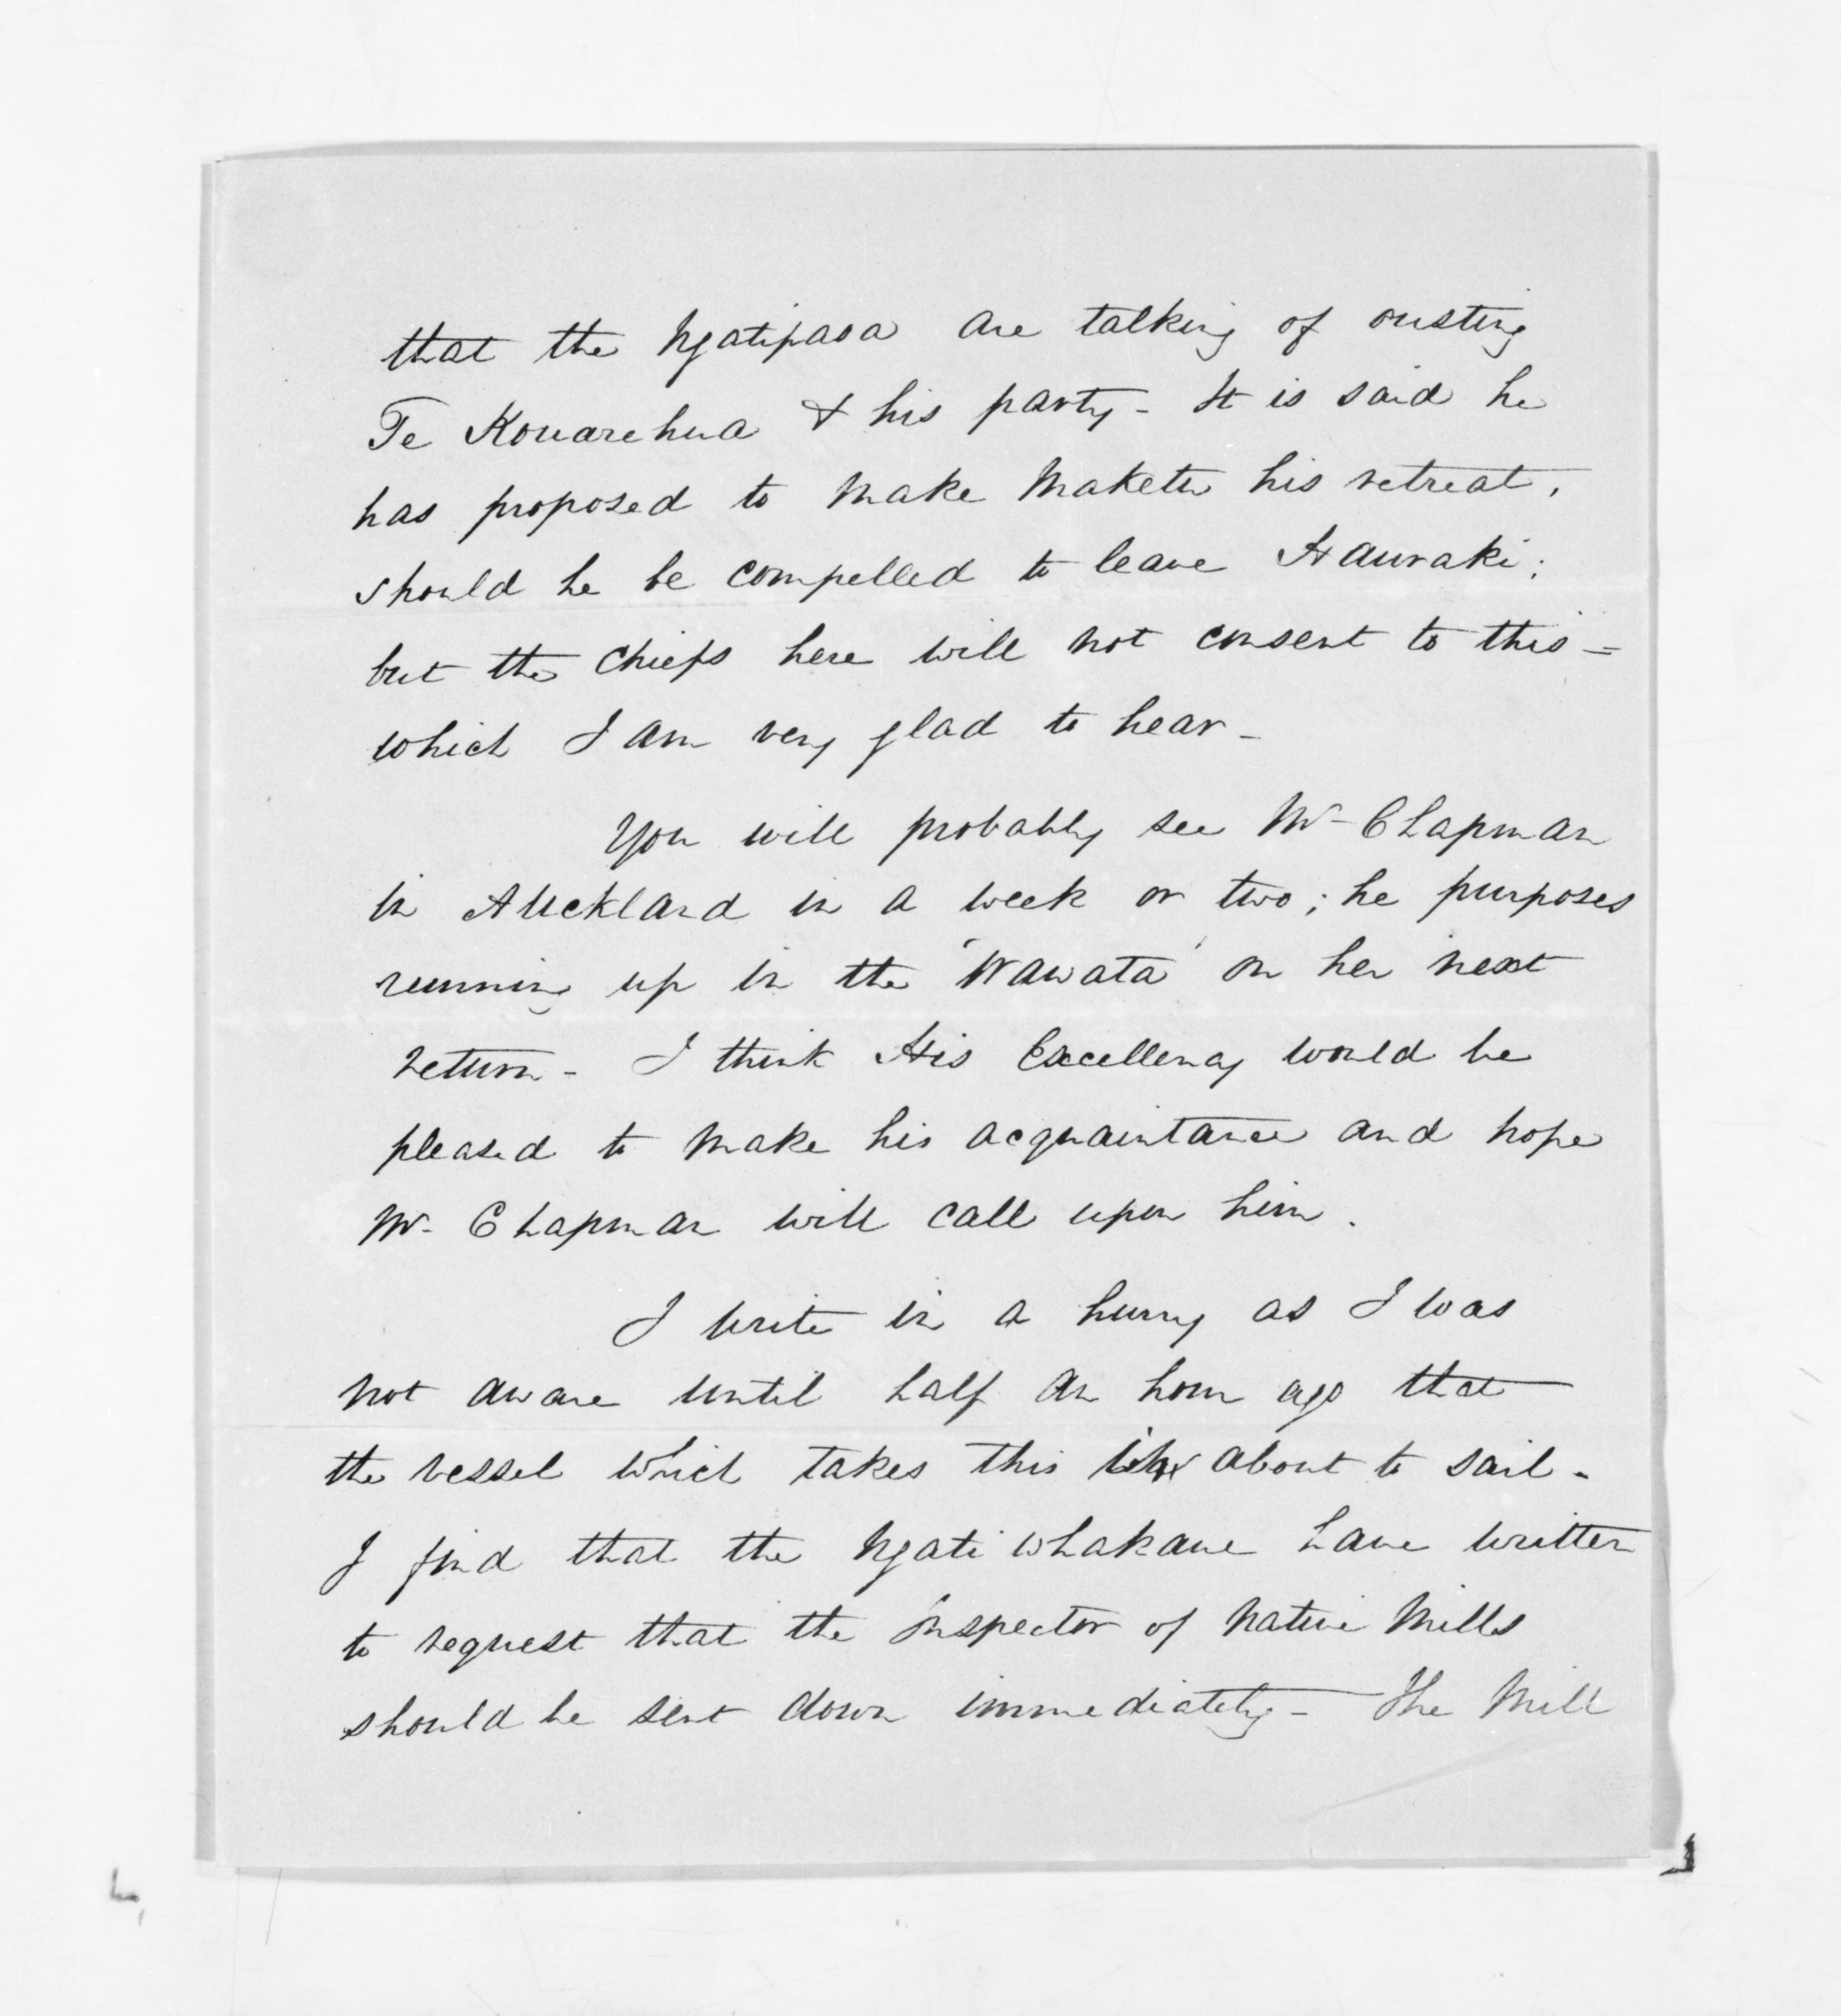 that the Ngatipaoa are talking of ousting
Te Kouarehua & his party - It is said he
has proposed to make Maketu his retreat,
should he be compelled to leave Hauraki;
but the chiefs here will not consent to this =
which I am very glad to hear -
You will probably see Mr Chapman
in Auckland in a week or two; he purposes
running up in the 'Wawata' on her next
return - I think His Excellency would be
pleased to make his acquaintance and hope
Mr Chapman will call upon him.
I write in a hurry as I was
not aware until half an hour ago that
the vessel which takes this is about to sail -
I find that the Ngatiwhakaue have written
to request that the Inspector of Native Mills
should be sent down immediately - The Mill